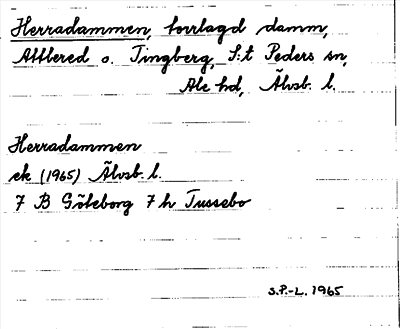 Herradammen, torrlagd damm,
Alfhered o. Tingberg, S:t Peders sn,
Ale hd, Älvsb. l.
Herradammen
ek (1965) Älvsb. l.
7 B Göteborg 7 h Tussebo
S.P.-L. 1965